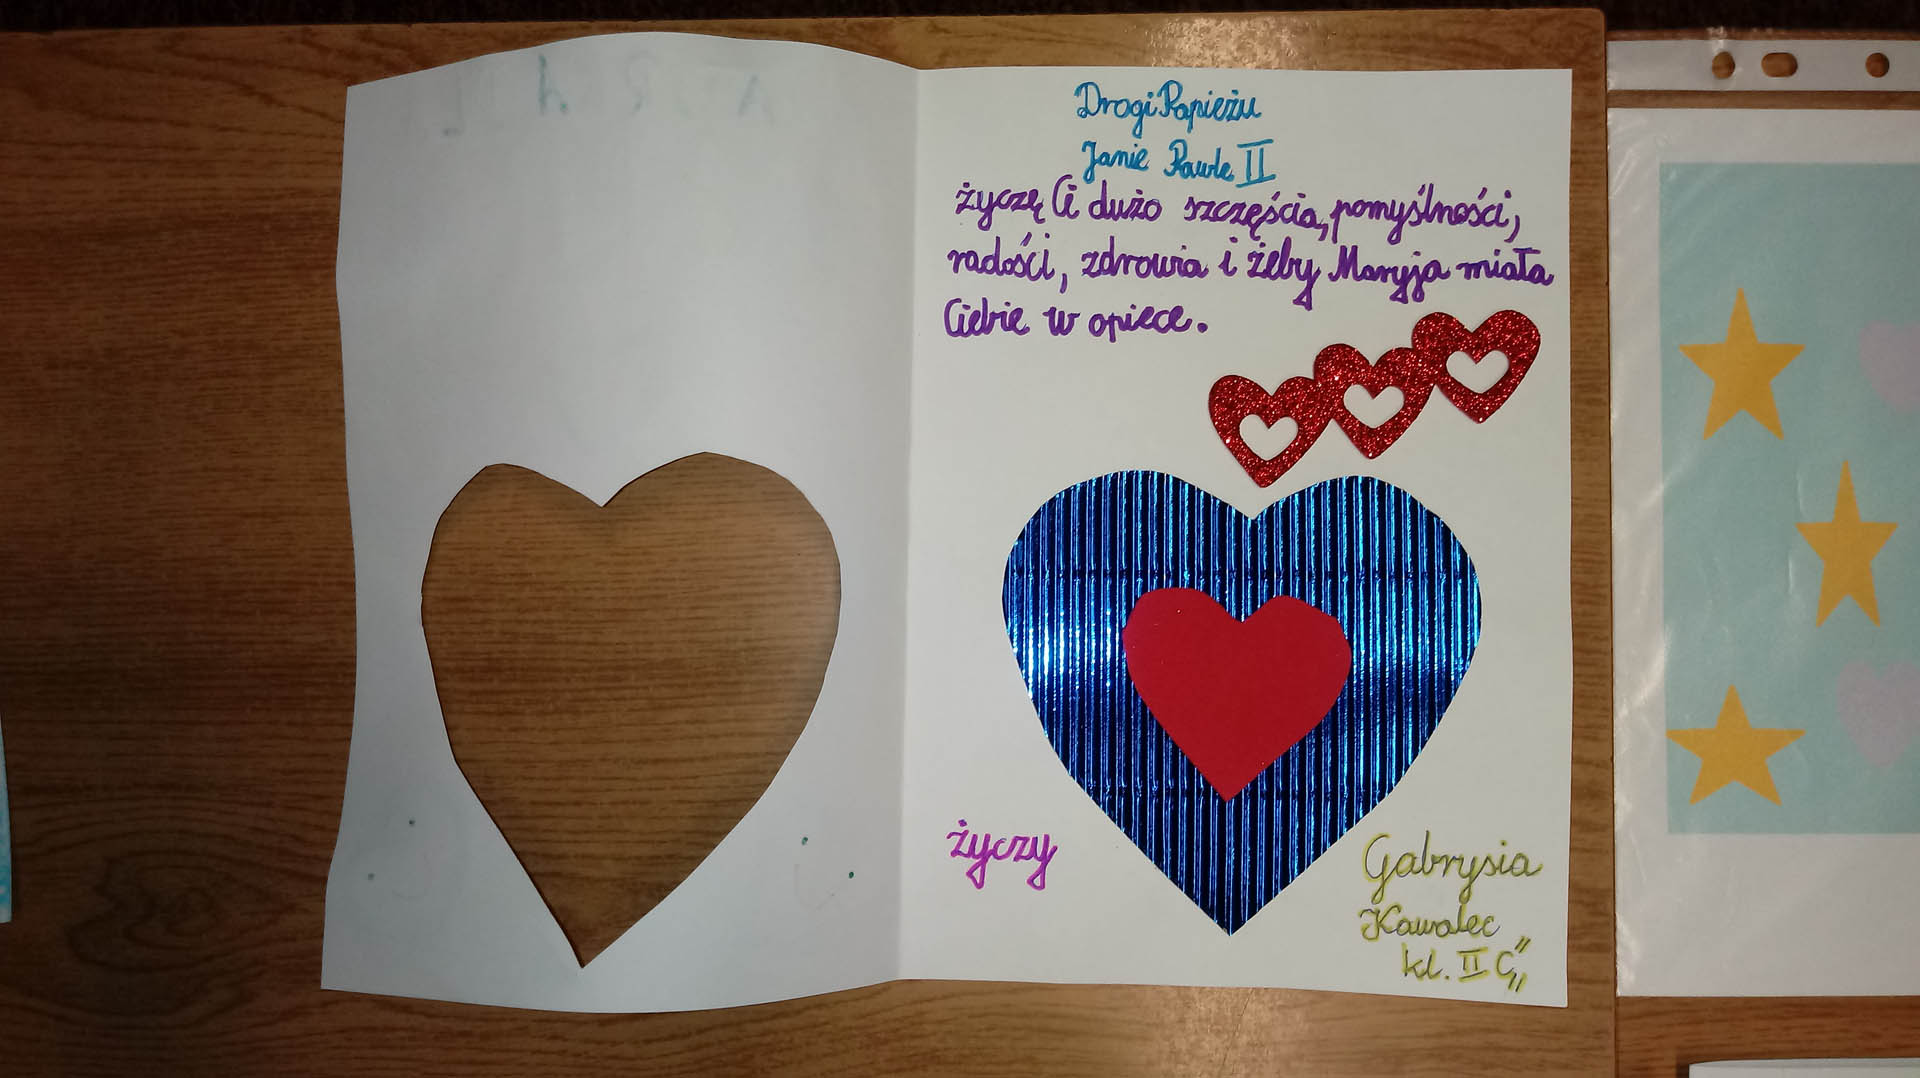 Drogi Papieżu
Janie Pawle II
życzę Ci dużo szczęścia, pomyślności,
radości, zdrowia i żeby Maryja miała
Ciebie w opiece.
życzy
Gabrysia
Kawalec
kl. II C"